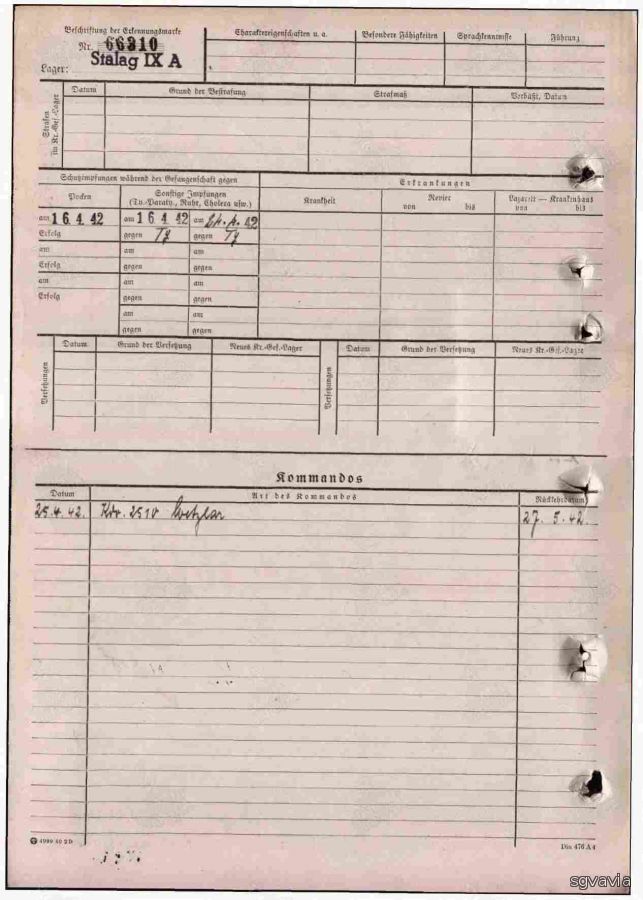 Beschriftung der Erkennungsmarke
Nr. 66310
Lager: Stalag IX A
Charaktereigenschaften u. a.
Besondere Fähigkeiten
Sprachkenntnisse
Führung
Strafen
in Kr.-Gef.-Lager
Datum
Grund der Bestrafung
Strafmaß
Verbüßt, Datum
Schutzimpfungen während der Gefangenschaft gegen
Erkrankungen
Pocken
Sonstige Impfungen
(Ty.-Paraty., Ruhr, Cholera usw.)
Krankheit
Revier
von bis
Lazarett — Krankenhaus
von bis
am 16.4.42 am 16.4.42 am 24.4.42
Erfolg gegen Ty gegen Ty
am am am
Erfolg gegen gegen
am am am
Erfolg gegen gegen
am am
gegen gegen
Versetzungen
Datum
Grund der Versetzung
Neues Kr.-Gef.-Lager
Versetzungen
Datum
Grund der Versetzung
Neues Kr.-Gef.-Lager
Kommandos
Datum
Art des Kommandos
Rückkehrdatum
25.4.42. Kdo. 2510 Wetzlar 27. 5. 42.
4999 40 2 D
Din 476 A 4
sgvavia